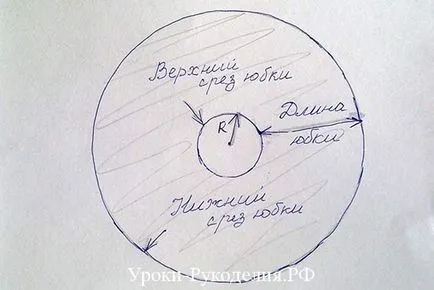 Верхний
срез юбки
R
Длина
юбки
Нижний
срез юбки
Уроки-Рукоделия.РФ